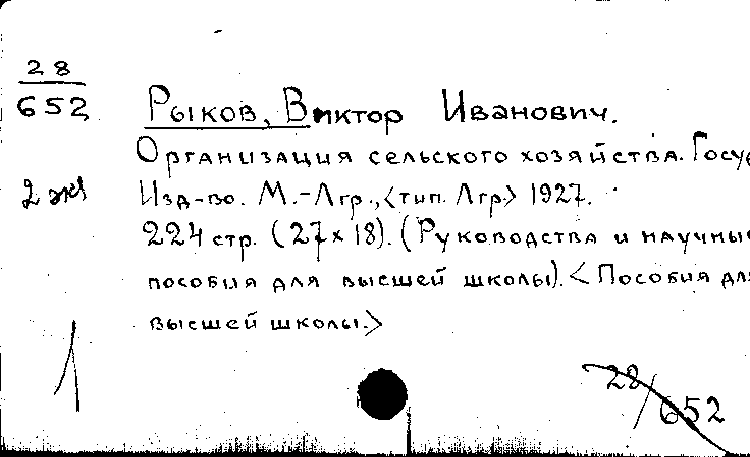 28
652
Рыков, Виктор Иванович.
Организация сельского хозяйства. Госуд
2 экз
Изд-во. М.-Лгр., <тип. Лгр> 1927.
224 стр. (27 x 18). (Руководства и научные
пособия для высшей школы). <Пособия для
высшей школы.>
1
28/652